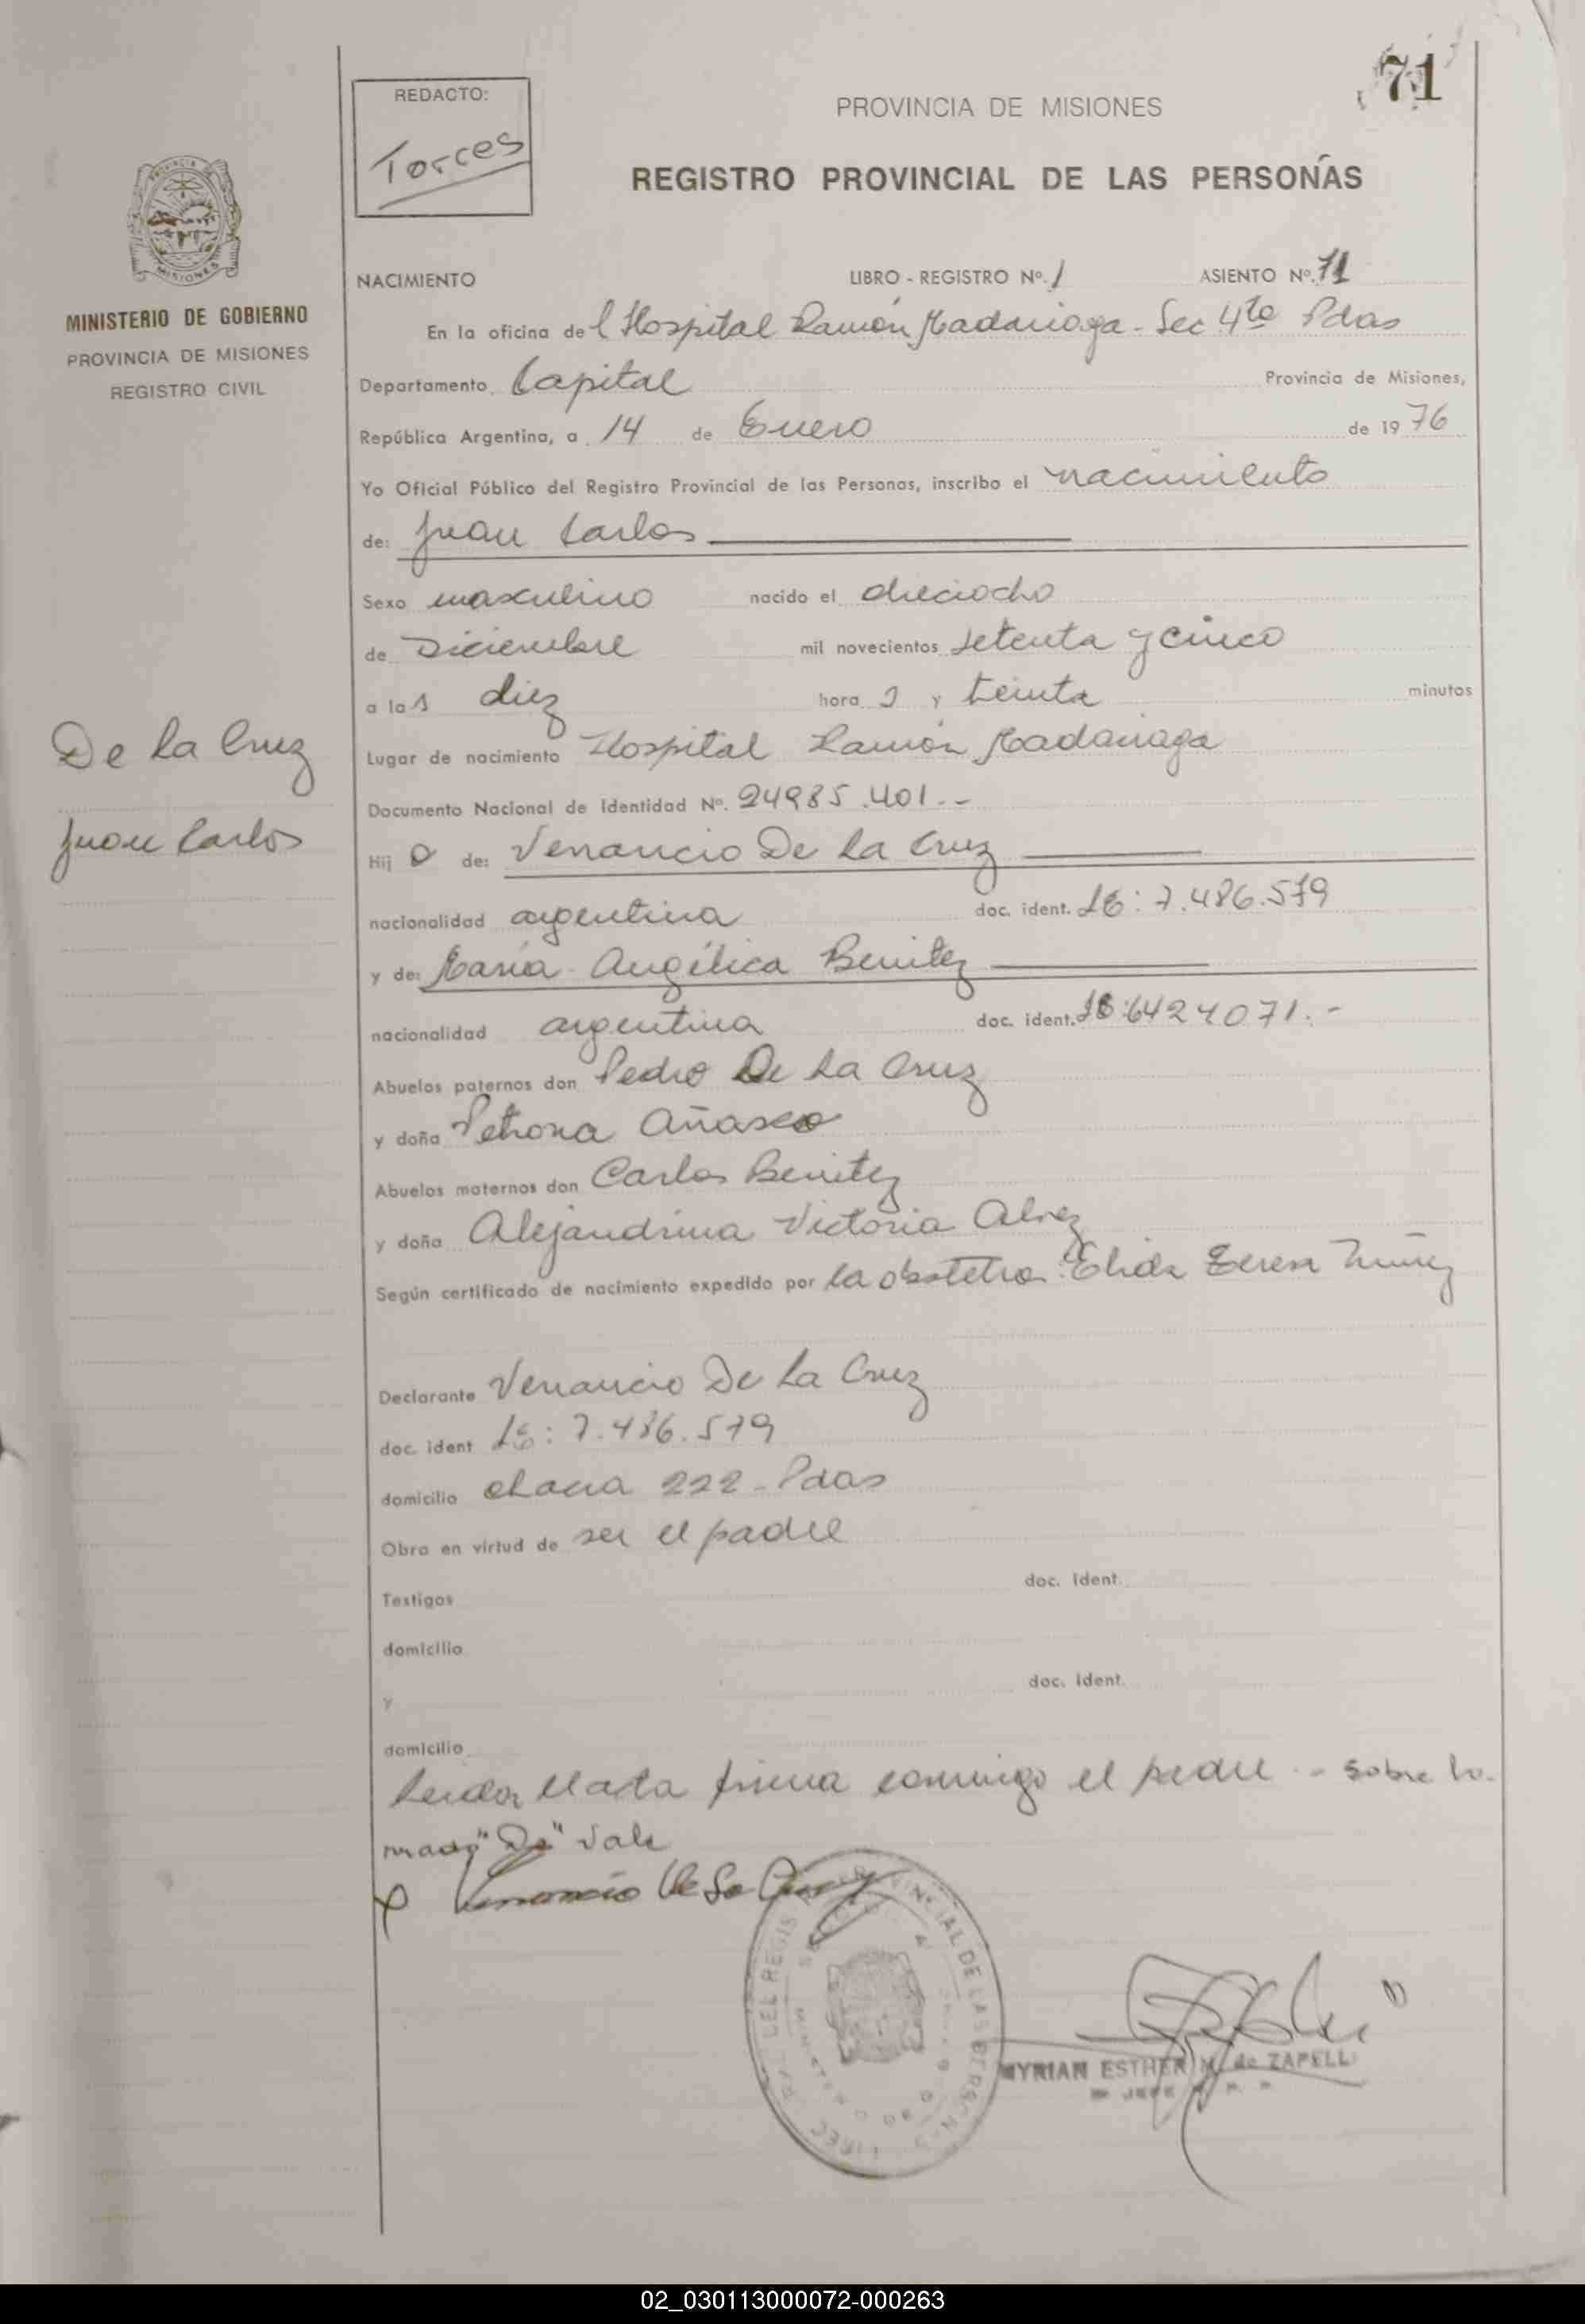 71
REDACTO:
Torres
PROVINCIA DE MISIONES
REGISTRO PROVINCIAL DE LAS PERSONAS
MINISTERIO DE GOBIERNO
PROVINCIA DE MISIONES
REGISTRO CIVIL
NACIMIENTO LIBRO - REGISTRO Nº. 1 ASIENTO Nº. 71
En la oficina del Hospital Ramón Madariaga - Sec 4ta Pdas
Departamento Capital Provincia de Misiones,
República Argentina, a 14 de Enero de 1976
Yo Oficial Público del Registro Provincial de las Personas, inscribo el nacimiento
de: Juan Carlos
Sexo masculino nacido el dieciocho
de Diciembre mil novecientos setenta y cinco
a las diez horas y treinta minutos
De La Cruz
Juan Carlos
Lugar de nacimiento Hospital Ramón Madariaga
Documento Nacional de Identidad Nº. 24985.401.--
Hijo de: Venancio De La Cruz
nacionalidad argentina doc. ident. LE: 7.486.579
y de: María Angélica Benitez
nacionalidad argentina doc. ident. 6424071.-
Abuelos paternos don Pedro De La Cruz
y doña Petrona Añasco
Abuelos maternos don Carlos Benitez
y doña Alejandrina Victoria Alvez
Según certificado de nacimiento expedido por la obstetra: Elida Teresa Nuñez
Declarante Venancio De La Cruz
doc. ident LE: 7.486.579
domicilio chacra 222 - Pdas
Obra en virtud de ser el padre
Testigos doc. ident.
domicilio
y doc. ident.
domicilio
Leida el acta firma conmigo el padre .- Sobre bo-
rrado "De" Vale
Venancio De La Cruz
MYRIAN ESTHER M. de ZAPELLI
JEFE
02_030113000072-000263